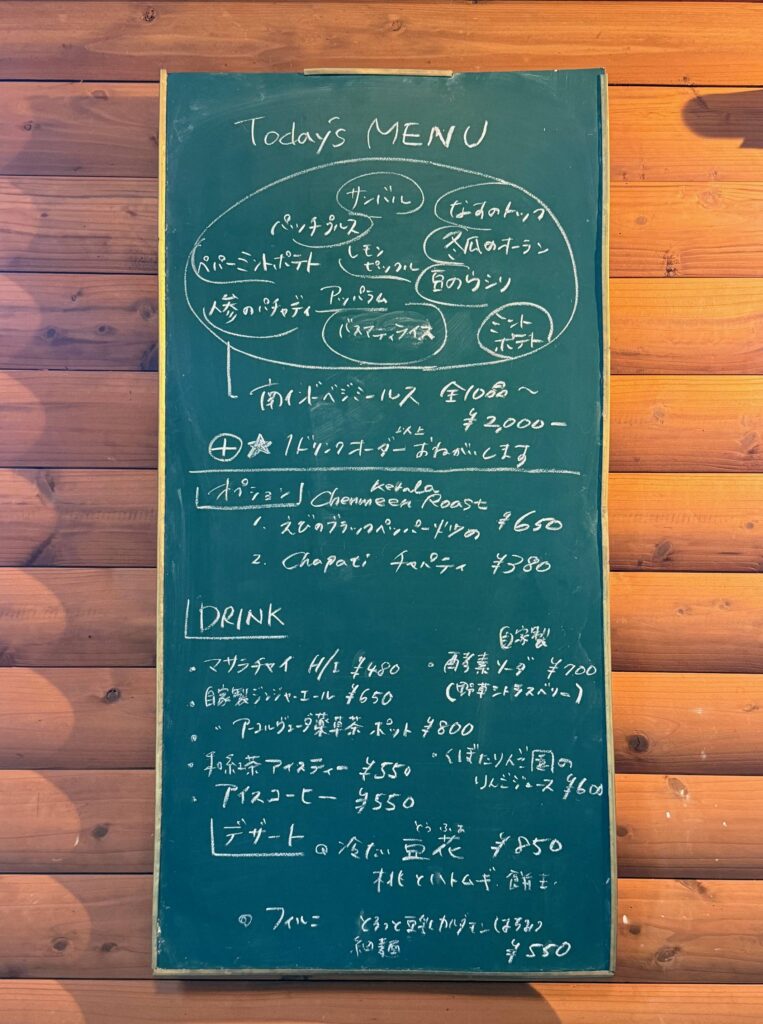 Today's MENU
サンバル
なすのトック
パッチプルス
冬瓜のオーラン
ペパーミントポテト
レモン
豆のウシリ
人参のパチャディ
アッパラム
バスマティライス
ミント
ポテト
南インドベジミールス 全10品〜
¥2,000-
⊕☆1ドリンクオーダー以上おねがいします
オプション
Kerala
Chenmeen Roast
1. えびのブラックペッパー ¥650
2. Chapati チャパティ ¥380
DRINK
・マサラチャイ H/I ¥480
・自家製ジンジャーエール ¥650
・〃 アーユルヴェーダ薬草茶 ポット ¥800
・和紅茶アイスティー ¥550
・アイスコーヒー ¥550
自家製
・酵素ソーダ ¥700
(野草とラズベリー)
・くぼたりんご園の
りんごジュース ¥600
デザート
冷たい豆花 ¥850
とうふぁ
桃とハトムギ
フィルニ とろっと豆乳カルダモン
¥550